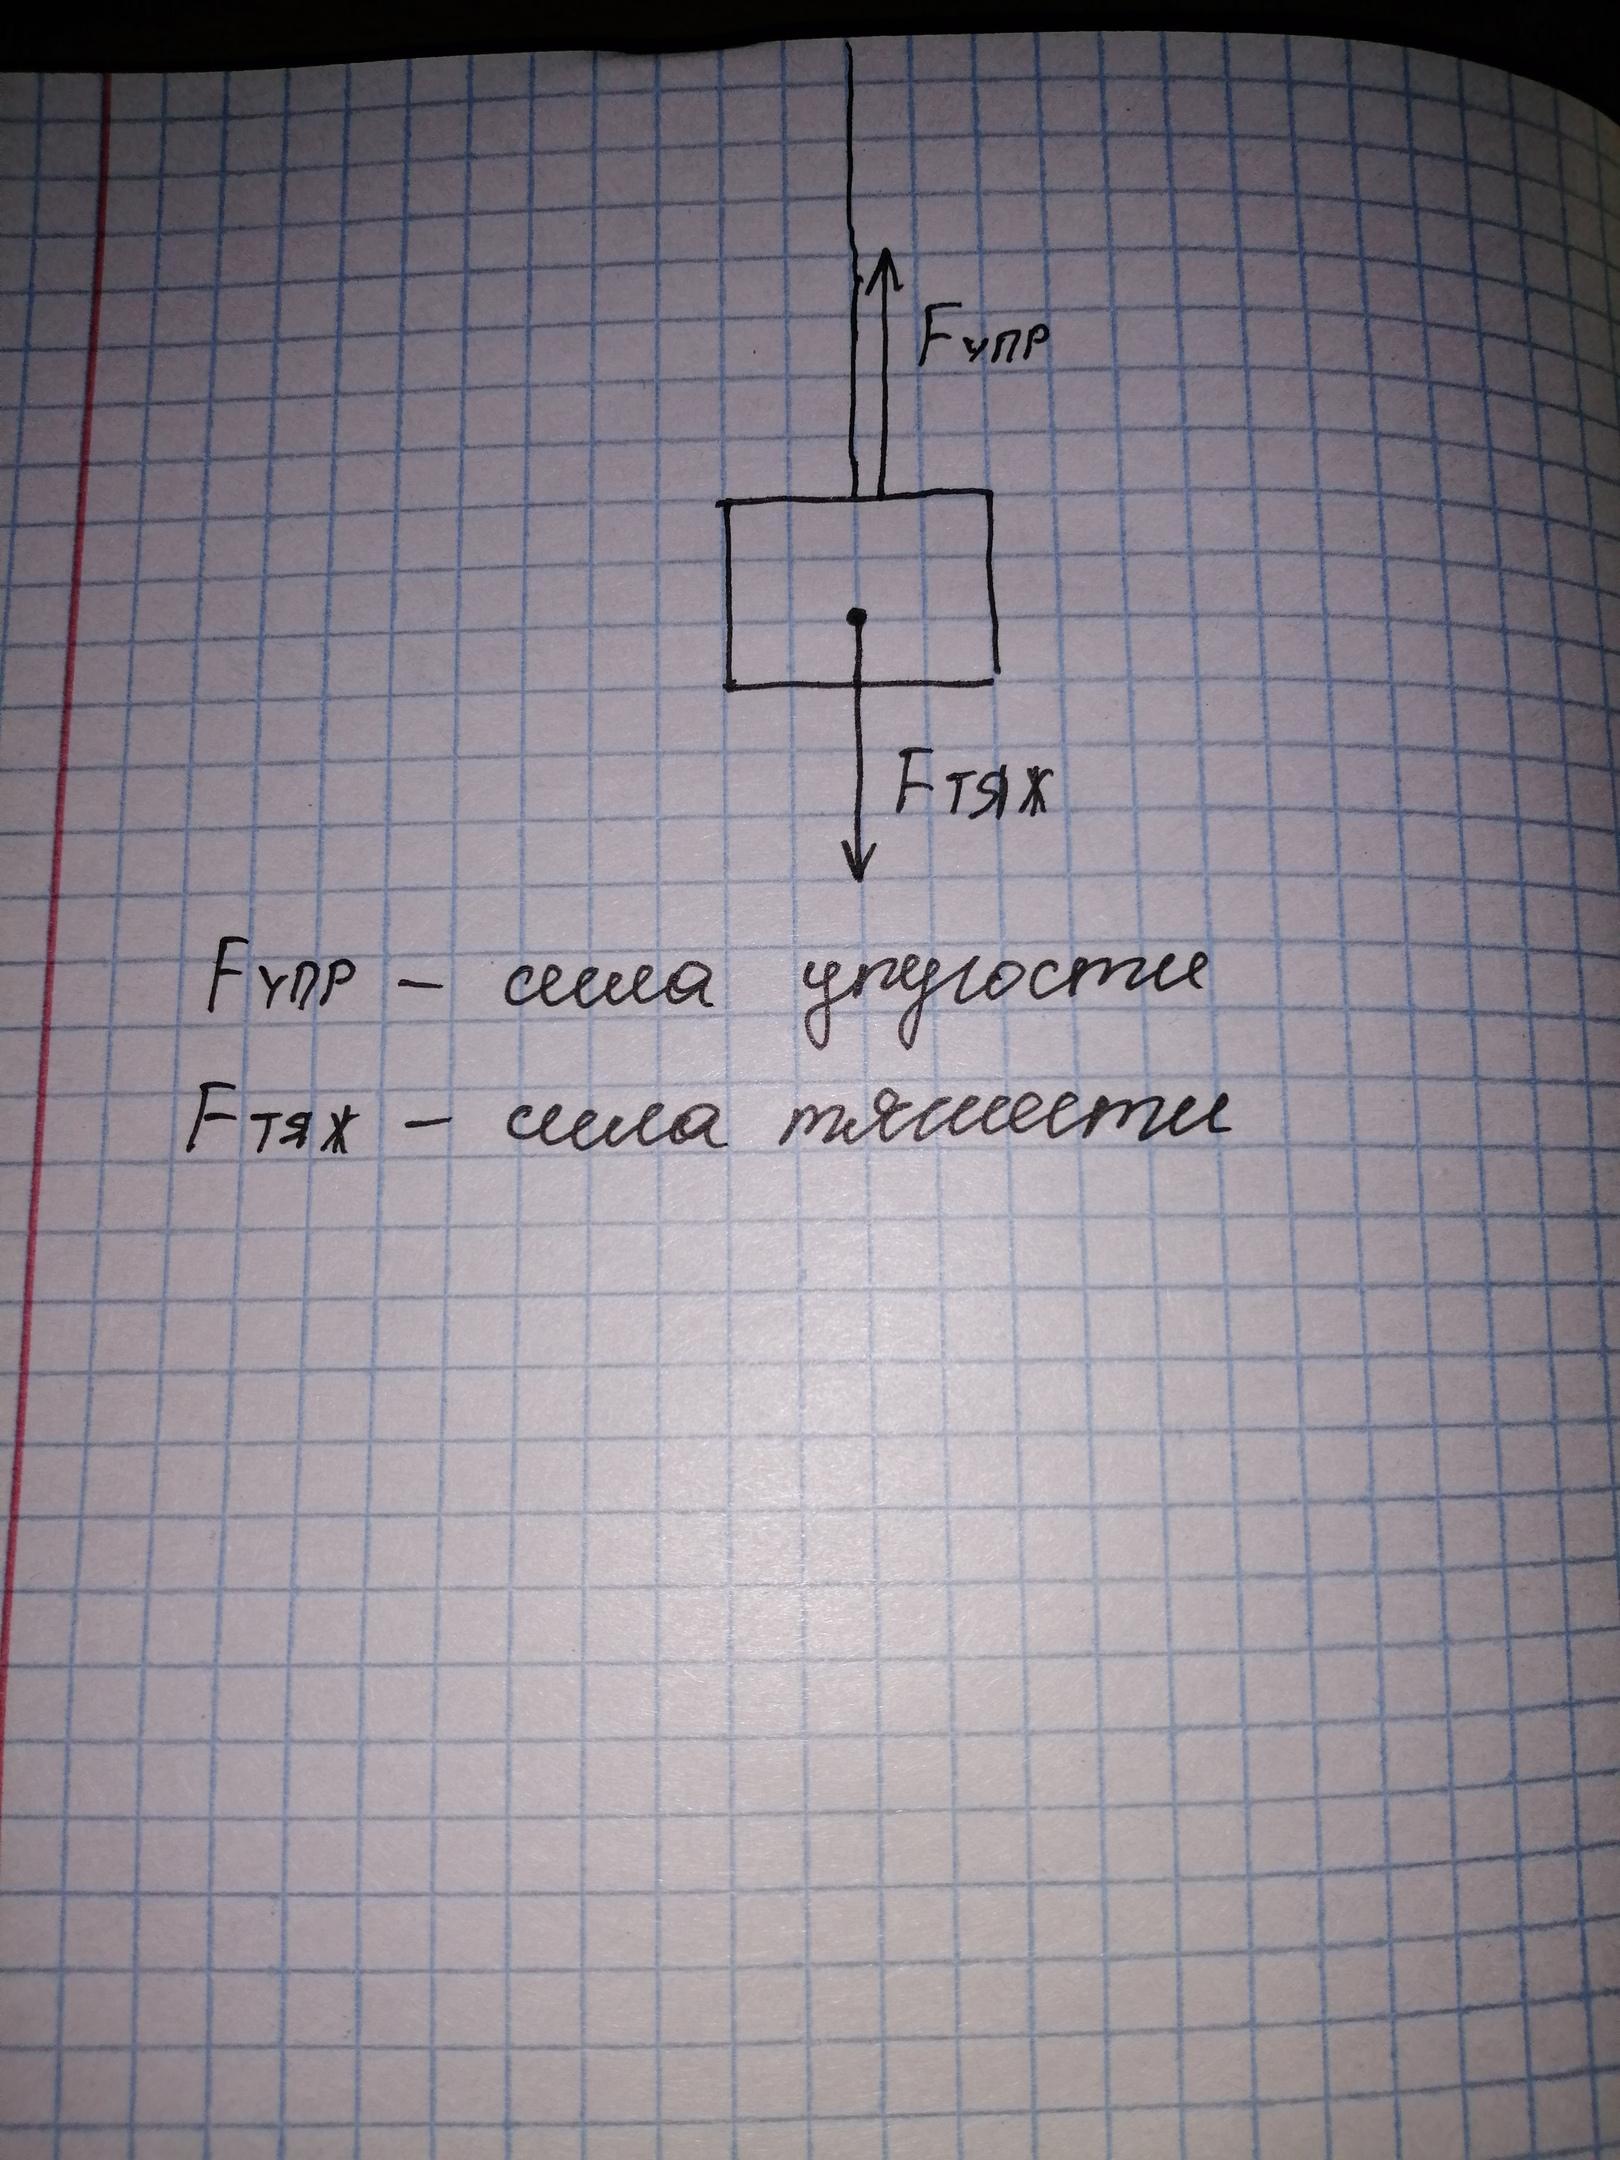 Fупр
Fтяж
Fупр – сила упругости
Fтяж – сила тяжести